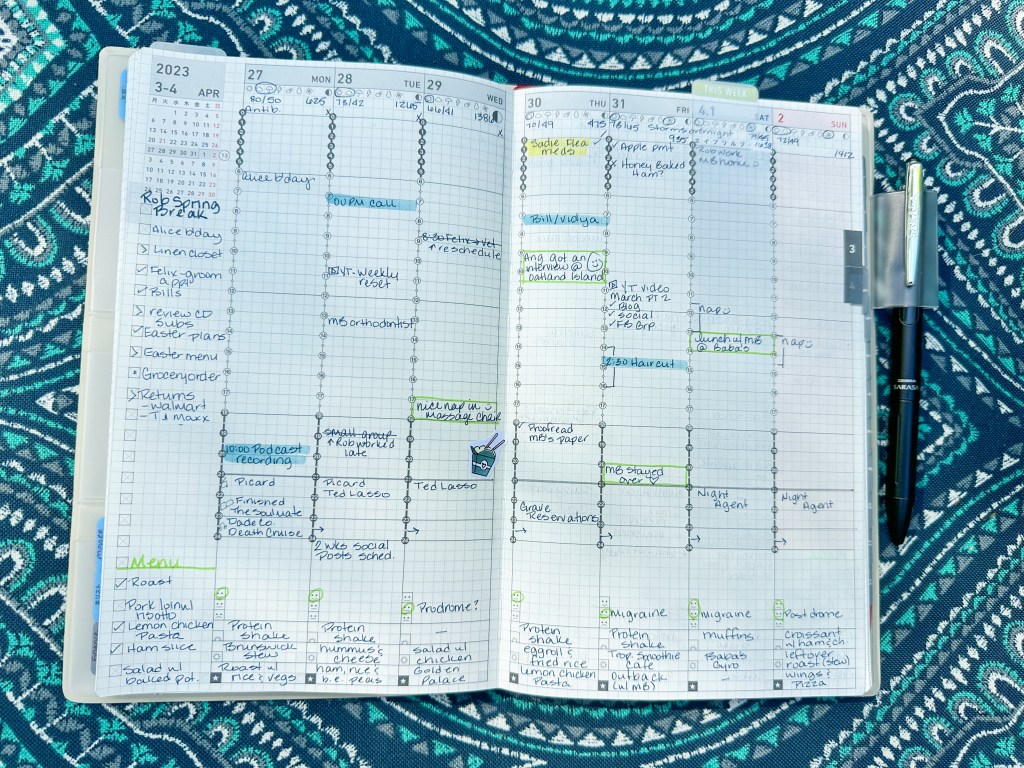 2023
3-4 APR
月 火 水 木 金 土 日
1 2 3 4 5
6 7 8 9 10 11 12
13 14 15 16 17 18 19
20 21 22 23 24 25 26
27 28 29 30 31 1 2
3 4 5 6 7 8 9
10 11 12 13 14 15 16
17 18 19 20 21 22 23
24 25 26 27 28 29 30
Rob Spring
Break
Alice b'day
Linen closet
Felix-groom
appt
Bills
review CD
subs
Easter plans
Easter menu
Grocery order
Returns
- Walmart
- TJ Maxx
Menu
Roast
Pork loin w/
risotto
Lemon chicken
Pasta
Ham slice
Salad w/
baked pot.
27 MON
80/50 625
Antib.
Alice b'day
10:00 Podcast
recording
Picard
Finished
The Soulmate
Dade Co.
Death Cruise
Protein
shake
Brunswick
stew
Roast w/
rice & vegs
28 TUE
73/42 1265
OUPM call
YT-Weekly
reset
MB orthodontist
small group
↑ Rob worked
late
Picard
Ted Lasso
2 wks social
Posts sched.
Protein
shake
hummus &
cheese
ham, rice &
b.e. peas
29 WED
66/41 1381
8:30 Felix → vet
↑ reschedule
nice nap in
massage chair
Ted Lasso
Prodrome?
—
salad w/
chicken
Golden
Palace
30 THU
70/49 475
Sadie Flea
meds
Bill/Vidya
Ang got an
interview @
Oatland Island
Proofread
MB's paper
Grave
Reservations
Protein
shake
eggroll &
fried rice
Lemon chicken
Pasta
31 FRI
78/65
Apple pmt
Honey Baked
Ham?
YT video
March PT 2
Blog
social
FB Grp
2:30 Haircut
MB stayed
over ♡
Migraine
Protein
shake
Trop Smoothie
Cafe
Outback
(w/ MB)
THIS WEEK
4.1 SAT
Storms overnight
Rob work
MB home
nap
Lunch w/ MB
@ Baba's
Night
Agent
Migraine
muffins
Baba's
Gyro
-
2 SUN
72/49
1412
nap
Night
Agent
Postdrome
croissant
w/ ham & ch.
leftover
roast (stew)
wings &
Pizza
3
4
SARASA